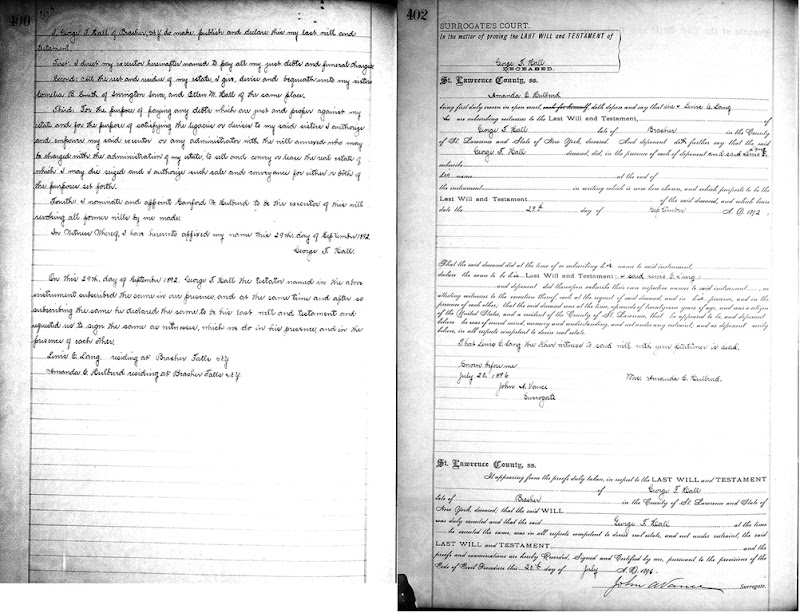 400
I George T. Hall of Brasher, N.Y. do make, publish and declare this my last will and
testament.
First. I direct my executor hereinafter named to pay all my just debts and funeral charges
Second: All the rest and residue of my estate, I give, devise and bequeath unto my sisters
Cornelia B. Smith of Irvington Iowa, and Ellen M. Hall of the same place.
Third. For the purpose of paying any debts which are just and proper against my
estate and for the purpose of satisfying the legacies or devises to my said sisters I authorize
and empower my said executor or any administrator with the will annexed who may
be charged with the administration of my estate, to sell and convey or lease the real estate of
which I may die seized and I authorize such sale and conveyance for either or both of
the purposes set forth.
Fourth: I nominate and appoint Sanford A. Hulburd to be the executor of this will
revoking all former wills by me made.
In Witness Whereof, I have hereunto affixed my name this 29th day of September 1892.
George T. Hall.
On this 29th. day of September 1892. George T. Hall the testator named in the above
instrument subscribed the same in our presence, and at the same time and after so
subscribing the same he declared the same to be his last will and testament and
requested us to sign the same as witnesses, which we do in his presence, and in the
presence of each other.
Lewis E. Lang. residing at Brasher Falls N.Y
Amanda E. Hulburd residing at Brasher Falls N.Y.
402
SURROGATE'S COURT.
In the matter of proving the LAST WILL and TESTAMENT of
George T. Hall
DECEASED.
St. Lawrence County, ss.
Amanda E. Hulburd
being first duly sworn in open court, doth depose and say that she & Lewis E. Lang
are subscribing witnesses to the Last Will and Testament, of
George T. Hall late of Brasher in the County
of St. Lawrence and State of New York, deceased. And deponent doth further say that the said
George T. Hall deceased, did, in the presence of each of deponent and said Lewis E. Lang
subscribe
his name at the end of
the instrument in writing which is now here shown, and which purports to be the
Last Will and Testament of the said deceased, and which bears
date the 29th day of September A. D. 1892
That the said deceased did at the time of so subscribing his name to said instrument,
declare the same to be his Last Will and Testament; & said Lewis E. Lang
and deponent did thereupon subscribe their own respective names to said instrument, as
attesting witnesses to the execution thereof, and at the request of said deceased, and in his presence, and in the
presence of each other; that the said deceased was at the time, upwards of twenty-one years of age, and was a citizen
of the United States, and a resident of the County of St. Lawrence, that he appeared to be, and deponent
believes he was of sound mind, memory and understanding, and not under any restraint, and as deponent verily
believes, in all respects competent to devise real estate.
That Lewis E. Lang the other witness to said will, is dead.
Sworn before me
July 20 1896
John A. Vance
Surrogate
Mrs. Amanda E. Hulburd.
St. Lawrence County, ss.
It appearing from the proofs duly taken, in respect to the LAST WILL and TESTAMENT
of George T. Hall
late of Brasher in the County of St. Lawrence and State of
New York, deceased, that the said WILL
was duly executed and that the said George T. Hall at the time
he executed the same, was in all respects competent to devise real estate, and not under restraint, the said
LAST WILL and TESTAMENT and the
proofs and examinations are hereby Recorded, Signed and Certified by me, pursuant to the provisions of the
Code of Civil Procedure this 20th day of July A. D. 1896.
John A Vance Surrogate.